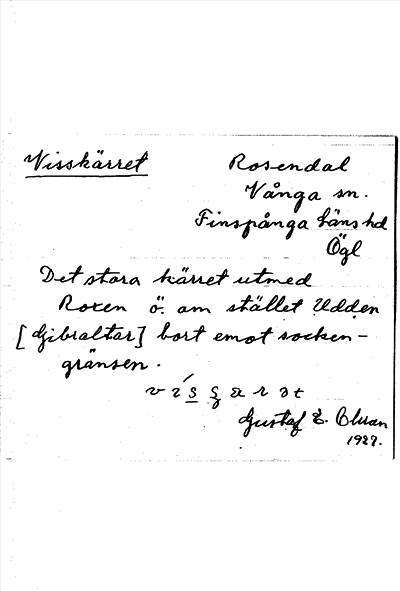 Visskärret
Rosendal
Vånga sn.
Finspånga läns hd
Ögl
Det stora kärret utmed
Roxen ö. om stället Udden
[Gibraltar] bort emot socken-
gränsen.
Gustaf E.
1927.